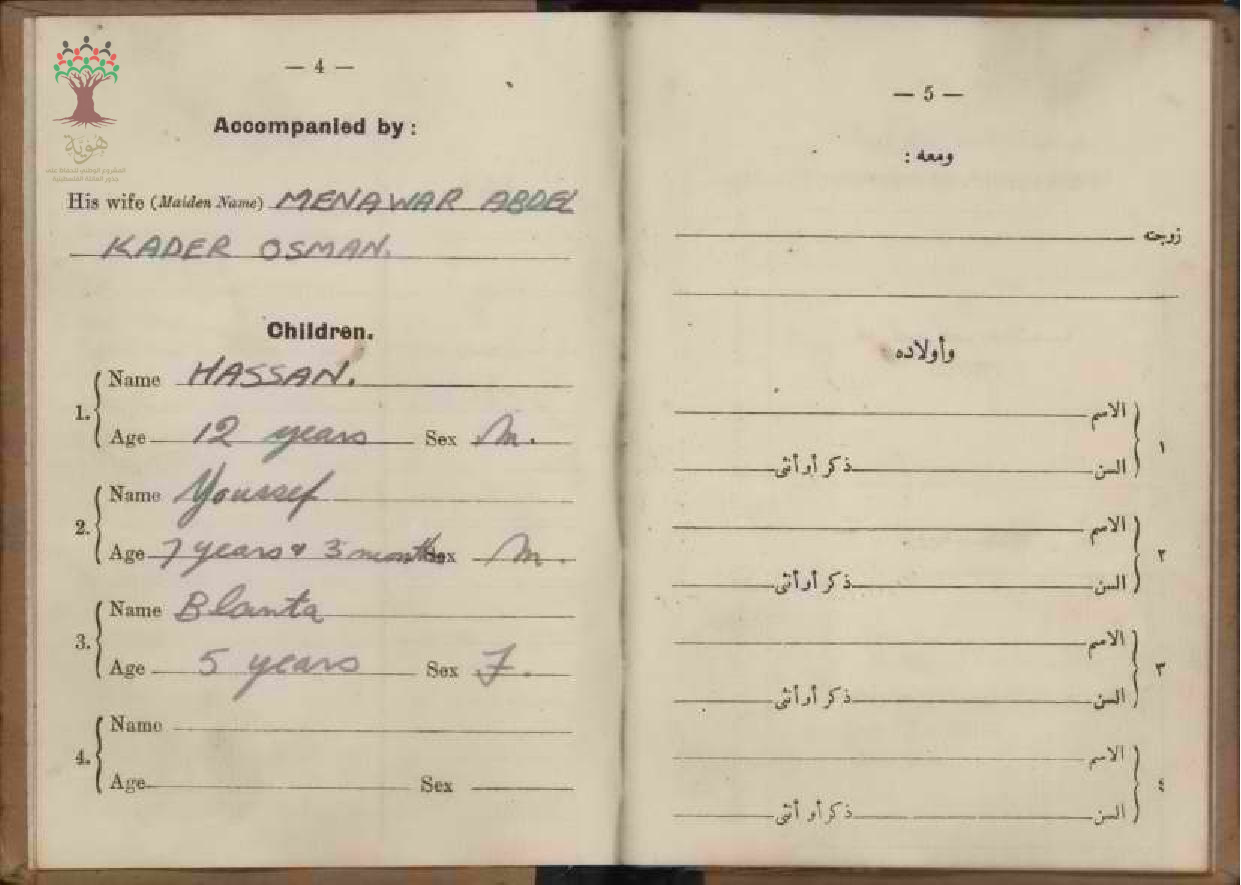 — 4 —
Accompanied by :
His wife (Maiden Name) MENAWAR ABDEL
KADER OSMAN.
Children.
1. Name HASSAN.
Age 12 years Sex M.
2. Name Youssef
Age 7 years & 3 months Sex M.
3. Name Blanta
Age 5 years Sex F.
4. Name
Age Sex
هوية
المشروع الوطني للحفاظ على
جذور العائلة الفلسطينية
— 5 —
ومعه :
زوجته
وأولاده
١ الاسم
السن ذكر أو أنثى
٢ الاسم
السن ذكر أو أنثى
٣ الاسم
السن ذكر أو أنثى
٤ الاسم
السن ذكر أو أنثى